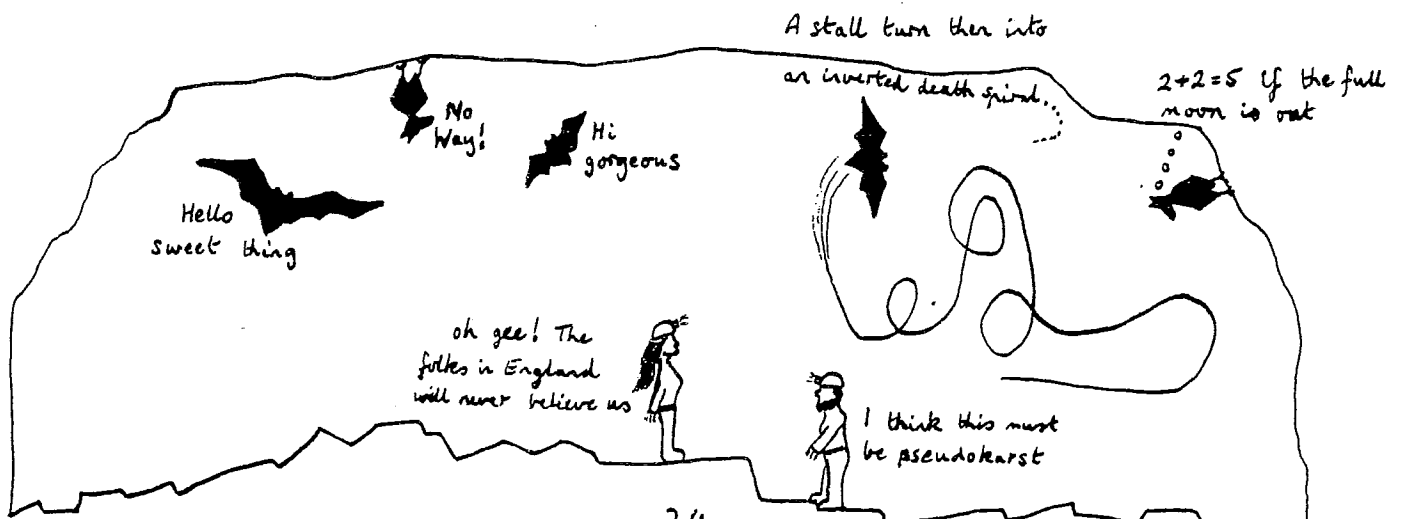 A stall turn then into
an inverted death spiral...
2+2=5 If the full
moon is out
No
Way!
Hi
gorgeous
Hello
sweet thing
oh gee! The
folkes in England
will never believe us
I think this must
be pseudokarst